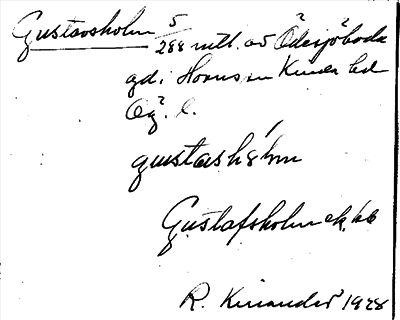 Gustavsholm 5/288 mtl. av Ödesjöboda
gd i Horns sn Kinda hd
Ög. l.
gustashôm
Gustafsholm ek. kb
R. Kinander 1928